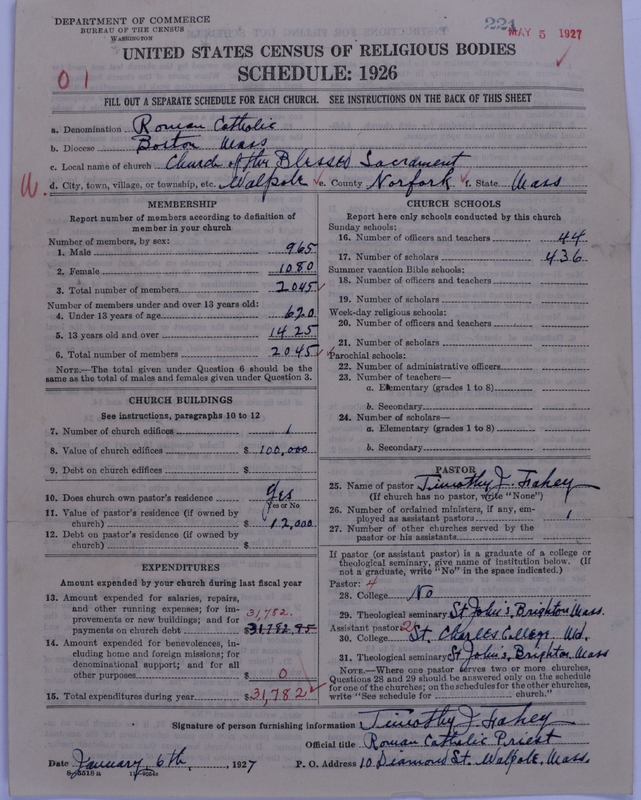 DEPARTMENT OF COMMERCE
BUREAU OF THE CENSUS
WASHINGTON
221
MAY 5 1927
UNITED STATES CENSUS OF RELIGIOUS BODIES
SCHEDULE: 1926
01
FILL OUT A SEPARATE SCHEDULE FOR EACH CHURCH. SEE INSTRUCTIONS ON THE BACK OF THIS SHEET
a. Denomination Roman Catholic
b. Diocese Boston Mass
c. Local name of church Church of the Blessed Sacrament
d. City, town, village, or township, etc. Walpole e. County Norfork f. State Mass
MEMBERSHIP
Report number of members according to definition of
member in your church
Number of members, by sex:
1. Male 965
2. Female 1080
3. Total number of members 2045
Number of members under and over 13 years old:
4. Under 13 years of age 620
5. 13 years old and over 1425
6. Total number of members 2045
NOTE.—The total given under Question 6 should be
same as the total of males and females given under Question 3.
CHURCH BUILDINGS
See instructions, paragraphs 10 to 12
7. Number of church edifices 1
8. Value of church edifices $ 100,000
9. Debt on church edifices $
10. Does church own pastor's residence Yes
Yes or No
11. Value of pastor's residence (if owned by
church) $ 12,000
12. Debt on pastor's residence (if owned by
church) $
EXPENDITURES
Amount expended by your church during last fiscal year
13. Amount expended for salaries, repairs,
and other running expenses; for im-
provements or new buildings; and for 31,782.
payments on church debt $ 31,782.95
14. Amount expended for benevolences, in-
cluding home and foreign missions; for
denominational support; and for all
other purposes $ 0
15. Total expenditures during year $ 31,782
CHURCH SCHOOLS
Report here only schools conducted by this church
Sunday schools:
16. Number of officers and teachers 44
17. Number of scholars 436
Summer vacation Bible schools:
18. Number of officers and teachers
19. Number of scholars
Week-day religious schools:
20. Number of officers and teachers
21. Number of scholars
Parochial schools:
22. Number of administrative officers
23. Number of teachers—
a. Elementary (grades 1 to 8)
b. Secondary
24. Number of scholars—
a. Elementary (grades 1 to 8)
b. Secondary
PASTOR
25. Name of pastor Timothy J. Fahey
(If church has no pastor, write "None")
26. Number of ordained ministers, if any, em-
ployed as assistant pastors 1
27. Number of other churches served by the
pastor or his assistants
If pastor (or assistant pastor) is a graduate of a college or
theological seminary, give name of institution below. (If
not a graduate, write "No" in the space indicated.)
Pastor: 4
28. College No
29. Theological seminary St John's, Brighton Mass.
Assistant pastor: 2
30. College St. Charles College Md.
31. Theological seminary St John's, Brighton Mass
NOTE.—Where one pastor serves two or more churches,
Questions 28 and 29 should be answered only on the schedule
for one of the churches; on the schedules for the other churches,
write "See schedule for church."
Signature of person furnishing information Timothy J. Fahey
Official title Roman Catholic Priest
Date January 6th, 1927 P. O. Address 10 Diamond St. Walpole, Mass.